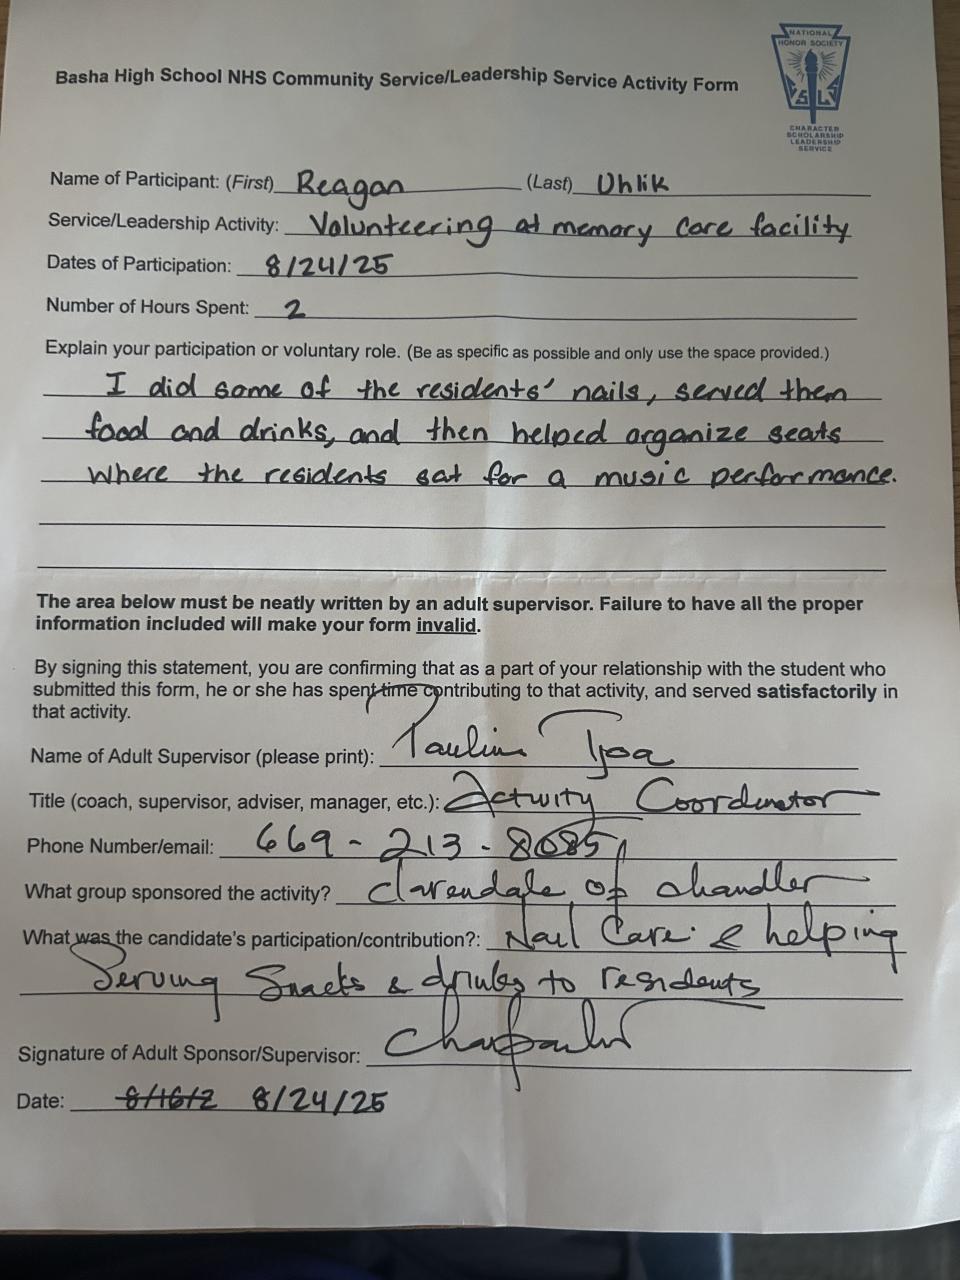 NATIONAL
HONOR SOCIETY
S L
CHARACTER
SCHOLARSHIP
LEADERSHIP
SERVICE
Basha High School NHS Community Service/Leadership Service Activity Form
Name of Participant: (First) Reagan (Last) Uhlik
Service/Leadership Activity: Volunteering at memory care facility
Dates of Participation: 8/24/25
Number of Hours Spent: 2
Explain your participation or voluntary role. (Be as specific as possible and only use the space provided.)
I did some of the residents' nails, served them
food and drinks, and then helped organize seats
where the residents sat for a music performance.
The area below must be neatly written by an adult supervisor. Failure to have all the proper
information included will make your form invalid.
By signing this statement, you are confirming that as a part of your relationship with the student who
submitted this form, he or she has spent time contributing to that activity, and served satisfactorily in
that activity.
Name of Adult Supervisor (please print): Paulin Tjoa
Title (coach, supervisor, adviser, manager, etc.): Activity Coordinator
Phone Number/email: 669-213-8085
What group sponsored the activity? Clarendale of Chandler
What was the candidate's participation/contribution?: Nail Care & helping
Serving Snacks & drinks to residents
Signature of Adult Sponsor/Supervisor:
Date: 8/16/2 8/24/25